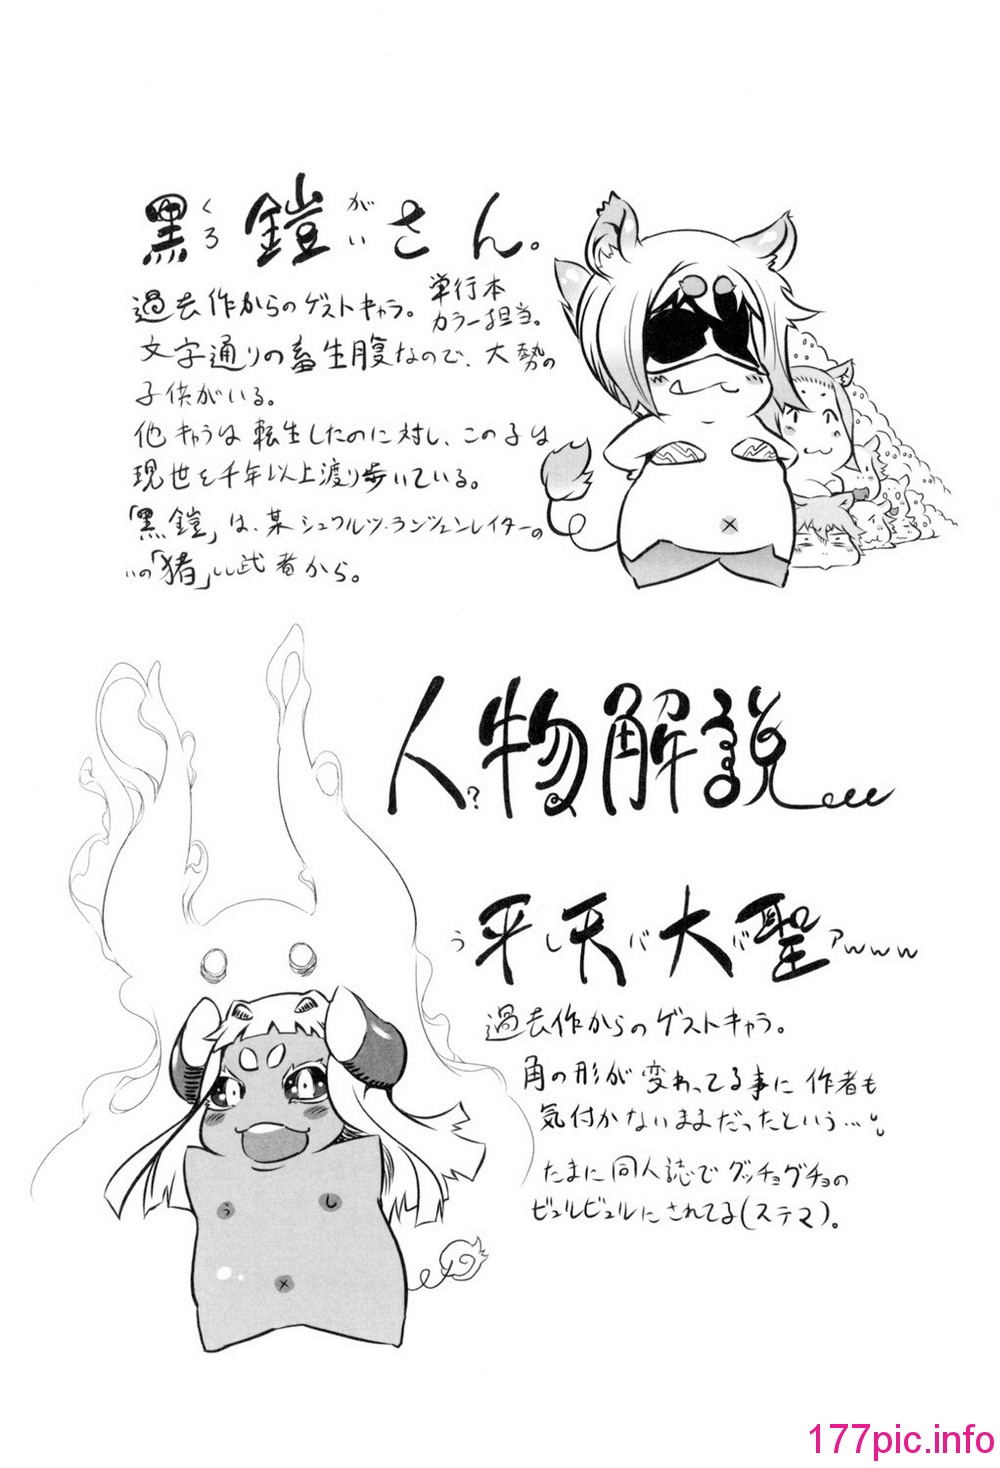 黒鎧さん。
くろ
がい
過去作からのゲストキャラ。
単行本
カラー担当。
文字通りの畜生腹なので、大勢の
子供がいる。
他キャラは転生したのに対し、この子は
現世を千年以上渡り歩いている。
「黒鎧」は、某シュワルツ・ランツェンレイターの
「猪」武者から。
人物解説
?
平天大聖
うしババアwww
過去作からのゲストキャラ。
角の形が変わってる事に作者も
気付かないままだったという…
たまに同人誌でグッチョグチョの
ビュルビュルにされてる(ステマ)。
う
し
177pic.info